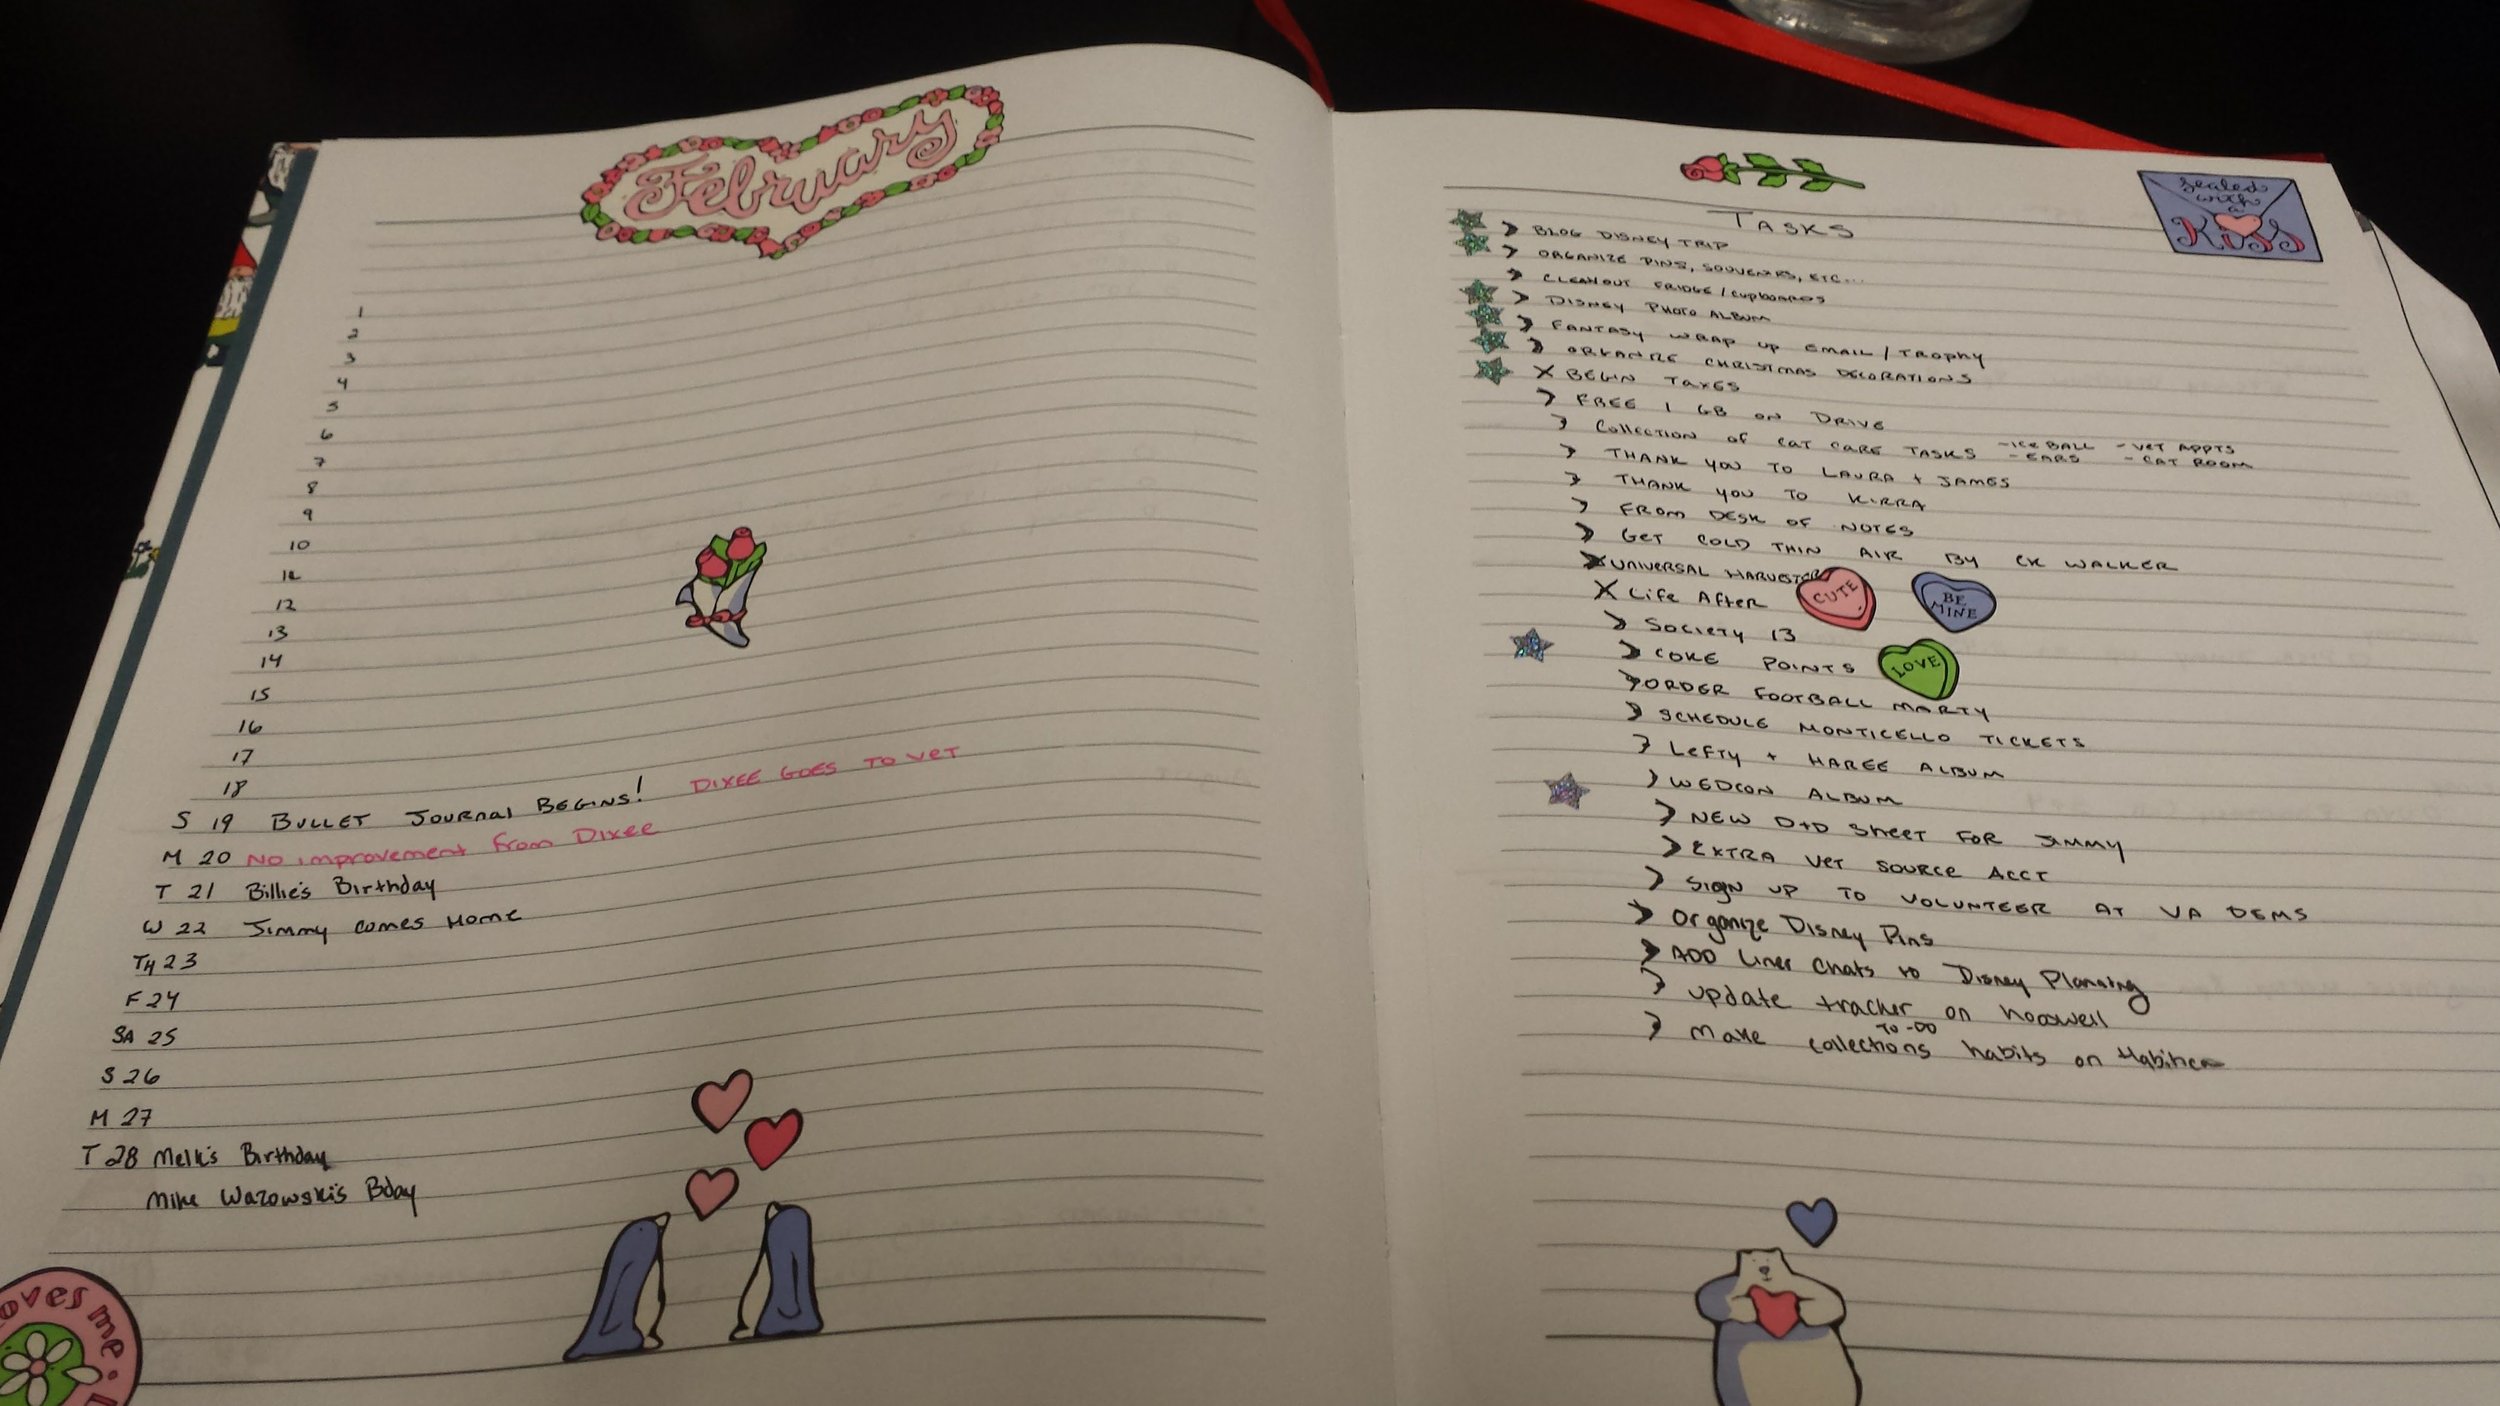 February
1
2
3
4
5
6
7
8
9
10
11
12
13
14
15
16
17
18
S 19 BULLET JOURNAL BEGINS! DIXEE GOES TO VET
M 20 NO improvement from Dixee
T 21 Billie's Birthday
W 22 Jimmy comes Home
TH 23
F 24
SA 25
S 26
M 27
T 28 Melk's Birthday
Mike Wazowski's Bday
oves me
sealed
with
a
KiSS
TASKS
> BLOG DISNEY TRIP
> ORGANIZE PINS, SOUVENIRS, ETC...
> CLEANOUT FRIDGE / CUPBOARDS
> DISNEY PHOTO ALBUM
> FANTASY WRAP UP EMAIL / TROPHY
> ORGANIZE CHRISTMAS DECORATIONS
X BEGIN TAXES
> FREE 1 GB ON DRIVE
> Collection of CAT CARE TASKS -ICE BALL - VET APPTS
- EARS - CAT ROOM
> THANK YOU TO LAURA + JAMES
> THANK YOU TO KIRRA
> FROM DESK OF NOTES
> GET COLD THIN AIR BY CK WALKER
X UNIVERSAL HARVESTER
X Life AfTER
CUTE
BE MINE
> SOCIETY 13
> COKE POINTS
LOVE
> ORDER FOOTBALL MARTY
> SCHEDULE MONTICELLO TICKETS
> LEFTY + HAREE ALBUM
> WEDCON ALBUM
> NEW D+D SHEET FOR JIMMY
> EXTRA VET SOURCE ACCT
> SIGN UP TO VOLUNTEER AT VA DEMS
> Organize Disney Pins
> ADD Liner Chats to Disney Planning
> update tracker on
> make collections TO-DO habits on